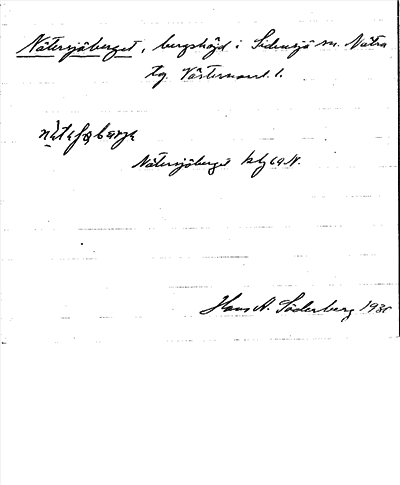 Nätersjöberget, bergshöjd i Sidensjö sn. Nätra
tg. Västernorrl. l.
Nätersjöberget kbl 69 N.
Hans A. Söderberg 1935